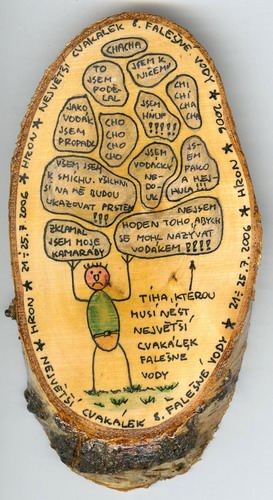 NEJVĚTŠÍ CVAKÁLEK 8. FALEŠNÉ VODY ★ 2006 ★ HRON ★ 21.-25.7.2006 ★
NEJVĚTŠÍ CVAKÁLEK 8. FALEŠNÉ VODY ★ HRON ★ 21.-25.7.2006 ★ HRON ★
CHACHA
TO
JSEM
PODĚ-
LAL
JSEM K
NIČEMU
JAKO
VODÁK
JSEM
PROPADL
CHO
CHO
CHO
CHO
JSEM
HŇUP
!!!!!
CHI
CHI
CHA
CHA
VŠEM JSEM
K SMÍCHU. VŠICHNI
SI NA MĚ BUDOU
UKAZOVAT PRSTEM
!!!
JSEM
VODÁCKÝ
NE-
DOUK
JS-
EM
PAKO
A NEJ-
HULA !!!
ZKLAMAL
JSEM MOJE
KAMARÁDY
NEJSEM
HODEN TOHO, ABYCH
SE MOHL NAZÝVAT
VODÁKEM !!!!
TÍHA, KTEROU
MUSÍ NÉST
NEJVĚTŠÍ
CVAKÁLEK
FALEŠNÉ
VODY